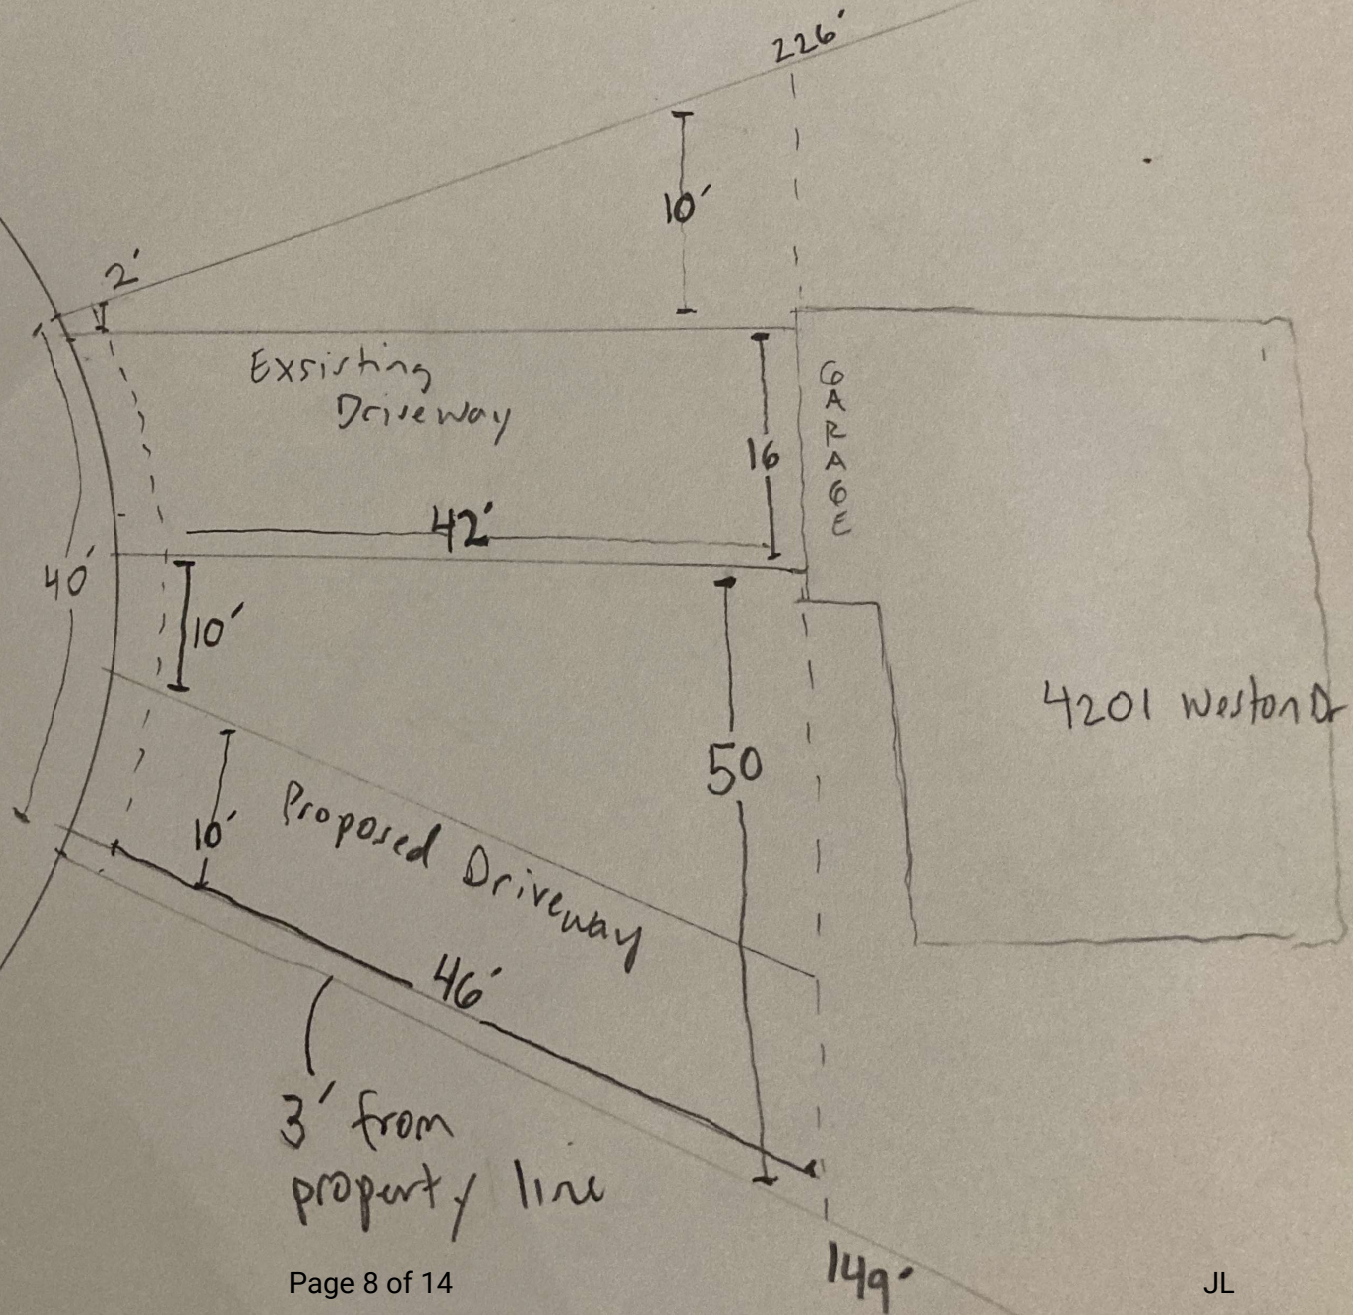 226'
10'
2'
Exsisting
Driveway
GARAGE
16
42'
40'
10'
4201 Weston Dr
50
10'
Proposed Driveway
46'
3' from
property line
149'
Page 8 of 14
JL